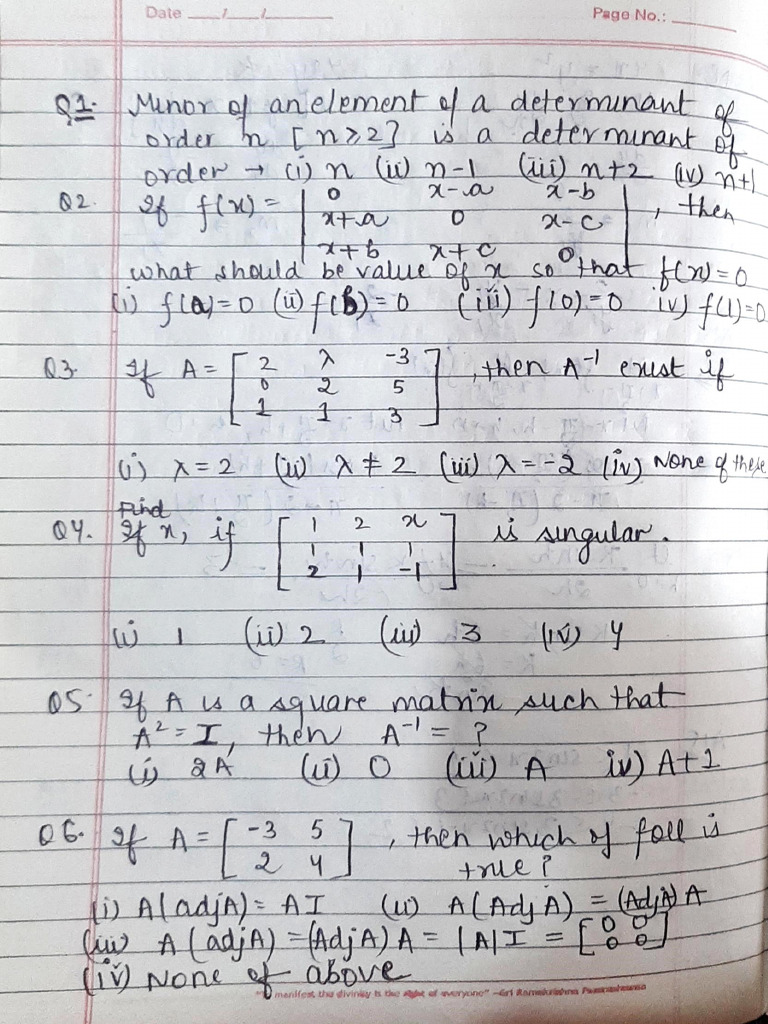 Date __/__/____ Page No.: ____
Q1. Minor of an element of a determinant of
order n [n≥2] is a determinant of
order → (i) n (ii) n-1 (iii) n+2 (iv) n+1
Q2. If f(x) = | 0 x-a x-b |
| x+a 0 x-c | , then
| x+b x+c 0 |
what should be value of x so that f(x)=0
(i) f(a)=0 (ii) f(b)=0 (iii) f(0)=0 iv) f(1)=0
Q3. If A = [ 2 λ -3 ] , then A⁻¹ exist if
[ 0 2 5 ]
[ 1 1 3 ]
(i) λ=2 (ii) λ≠2 (iii) λ=-2 (iv) None of these
Find
Q4. If x, if [ 1 2 x ] is singular.
[ 1 1 1 ]
[ 2 1 -1 ]
(i) 1 (ii) 2 (iii) 3 (iv) 4
Q5. If A is a square matrix such that
A² = I, then A⁻¹ = ?
(i) 2A (ii) 0 (iii) A iv) A+1
Q6. If A = [ -3 5 ] , then which of foll is
[ 2 4 ] true?
(i) A(adjA) = AI (ii) A(AdjA) = (AdjA)A
(iii) A(adjA) = (AdjA)A = |A|I = [ 0 0 ]
[ 0 0 ]
(iv) None of above
manifest the divinity is the of everyone" —Sri Ramakrishna Paramahamsa